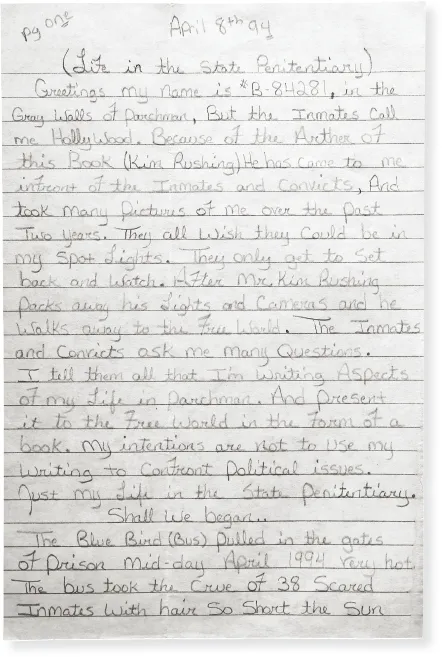 pg one
April 8th 94
(Life in the State Penitentiary)
Greetings my name is *B-84281, in the
Gray Walls of Parchman, But the Inmates Call
me Hollywood. Because of the Arther of
this Book (Kim Rushing) He has came to me
infront of the Inmates and Convicts, And
took Many Pictures of me over the Past
Two years. They all Wish they Could be in
my Spot Lights. They only get to Set
back and Watch. After Mr. Kim Rushing
Packs away his Lights and Cameras and he
Walks away to the Free World. The Inmates
and Convicts ask me many Questions.
I tell them all that I'm Writing Aspects
of my Life in Parchman. And Present
it to the Free World in the Form of a
book. My intentions are not to Use my
Writing to Confront Political issues.
Just my Life in the State Penitentiary.
Shall We began..
The Blue Bird (Bus) Pulled in the gates
of Prison Mid-day April 1994 very hot
The bus took the Crue of 38 Scared
Inmates With hair So Short the Sun